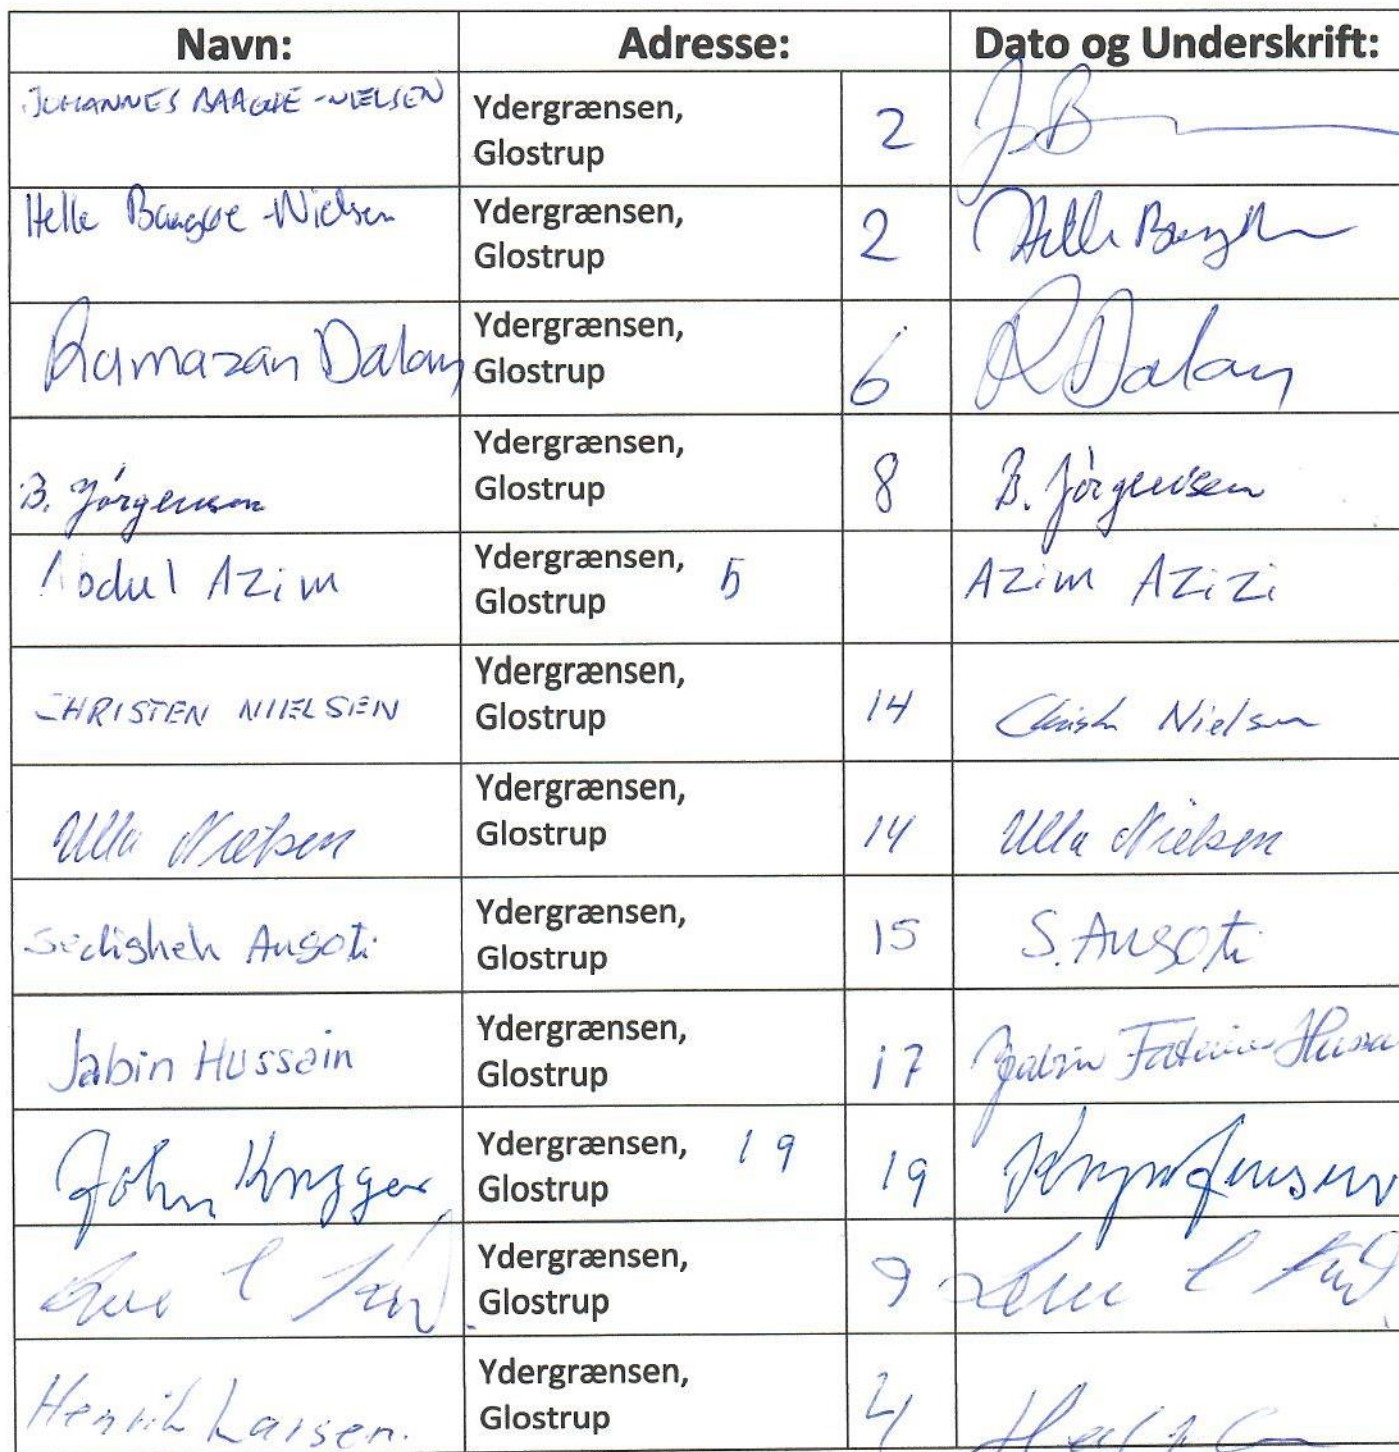 Navn: Adresse: Dato og Underskrift:
JOHANNES BAAGØE-NIELSEN Ydergrænsen, Glostrup 2 JB
Helle Baagøe-Nielsen Ydergrænsen, Glostrup 2 Helle
Ramazan Dalan Ydergrænsen, Glostrup 6 R Dalan
B. Jörgensen Ydergrænsen, Glostrup 8 B. Jörgensen
Abdul Azim Ydergrænsen, Glostrup 5 Azim AZiZi
CHRISTEN NIELSEN Ydergrænsen, Glostrup 14 Nielsen
Ulla Nielsen Ydergrænsen, Glostrup 14 Ulla Nielsen
Sedigheh Angoti Ydergrænsen, Glostrup 15 S. Angoti
Jabin Hussain Ydergrænsen, Glostrup 17 Jabin
John Ydergrænsen, Glostrup 19 19
Ydergrænsen, Glostrup 9
Henrik Larsen. Ydergrænsen, Glostrup 4